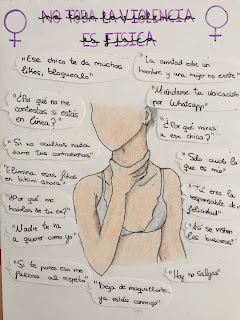 NO TODA LA VIOLENCIA
ES FISICA
"Ese chico te da muchos
likes, bloquealo"
"La amistad entre un
hombre y una mujer no existe"
"¿Por qué no me
contestas si estás
en línea?"
"Mándame tu ubicación
por Whatsapp"
"¿Por qué miras
a ese chico?"
"Si no ocultas nada
dame tus contraseñas"
"Solo cuido lo
que es mio"
"Elimina esas fotos
en bikini ahora"
"Tú eres la
responsable de mi
felicidad"
"¿Por qué me
hablas de tu ex?"
"Así se visten
las busconas"
"Nadie te va
a querer como yo"
"Si te pones eso me
faltas al respeto"
"Deja de maquillarte
ya estás conmigo"
"Hoy no salgas"